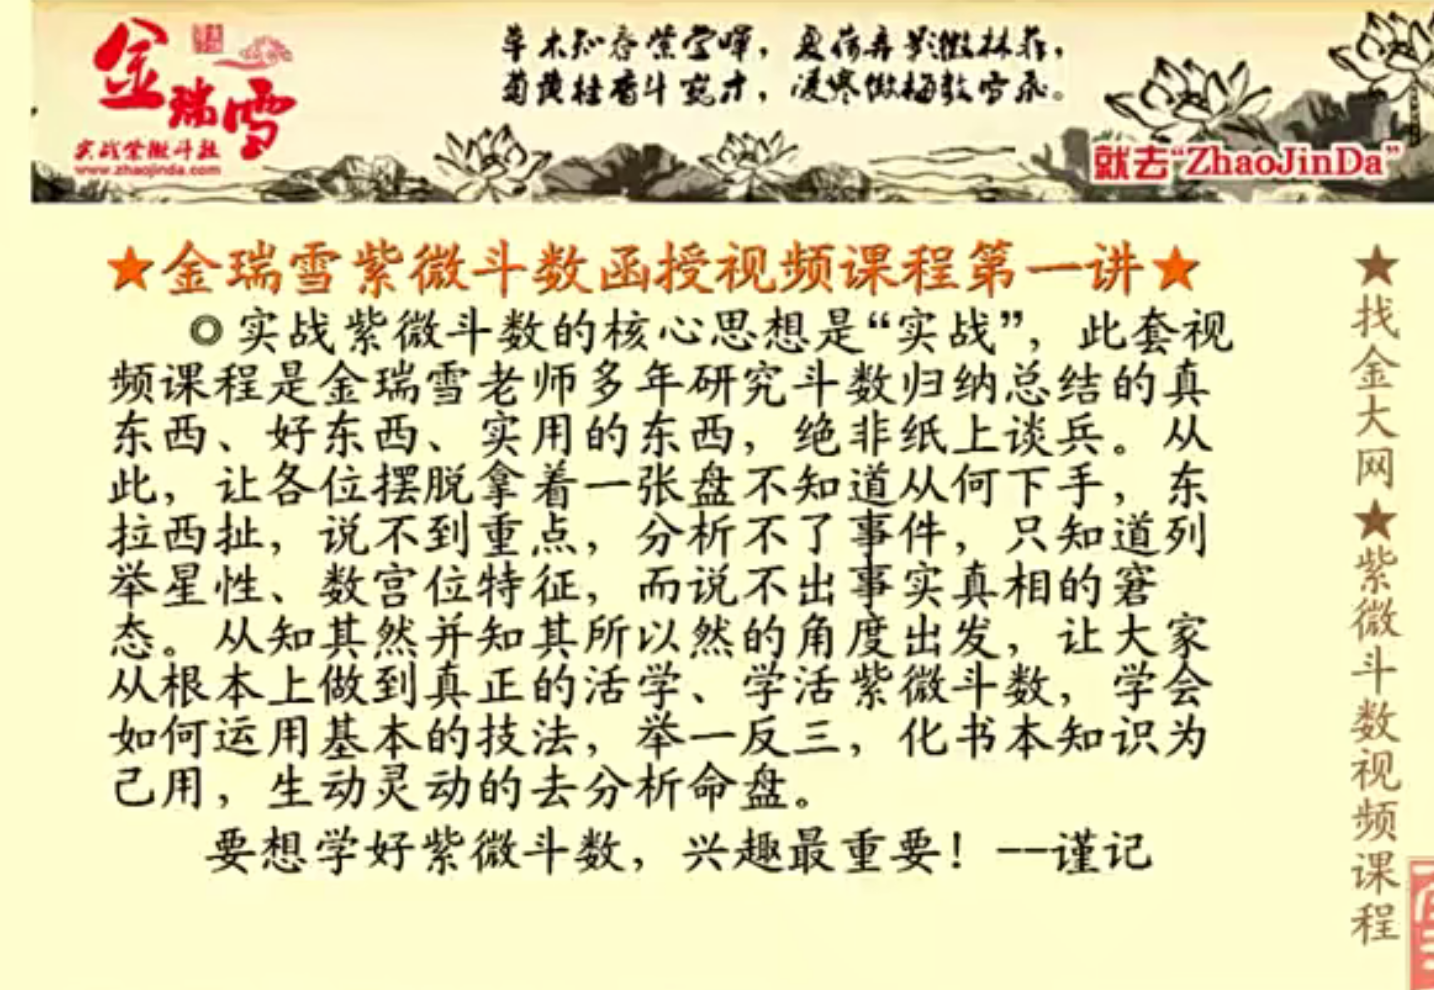 金瑞雪
实战紫微斗数
www.zhaojinda.com
草木知春紫宫晖，夏荷弄影微林菲，
菊黄桂香斗宛才，凌寒傲梅数雪飞。
就去“ZhaoJinDa”
★金瑞雪紫微斗数函授视频课程第一讲★
◎实战紫微斗数的核心思想是“实战”，此套视
频课程是金瑞雪老师多年研究斗数归纳总结的真
东西、好东西、实用的东西，绝非纸上谈兵。从
此，让各位摆脱拿着一张盘不知道从何下手，东
拉西扯，说不到重点，分析不了事件，只知道列
举星性、数宫位特征，而说不出事实真相的窘
态。从知其然并知其所以然的角度出发，让大家
从根本上做到真正的活学、学活紫微斗数，学会
如何运用基本的技法，举一反三，化书本知识为
己用，生动灵动的去分析命盘。
要想学好紫微斗数，兴趣最重要！--谨记
★找金大网★紫微斗数视频课程